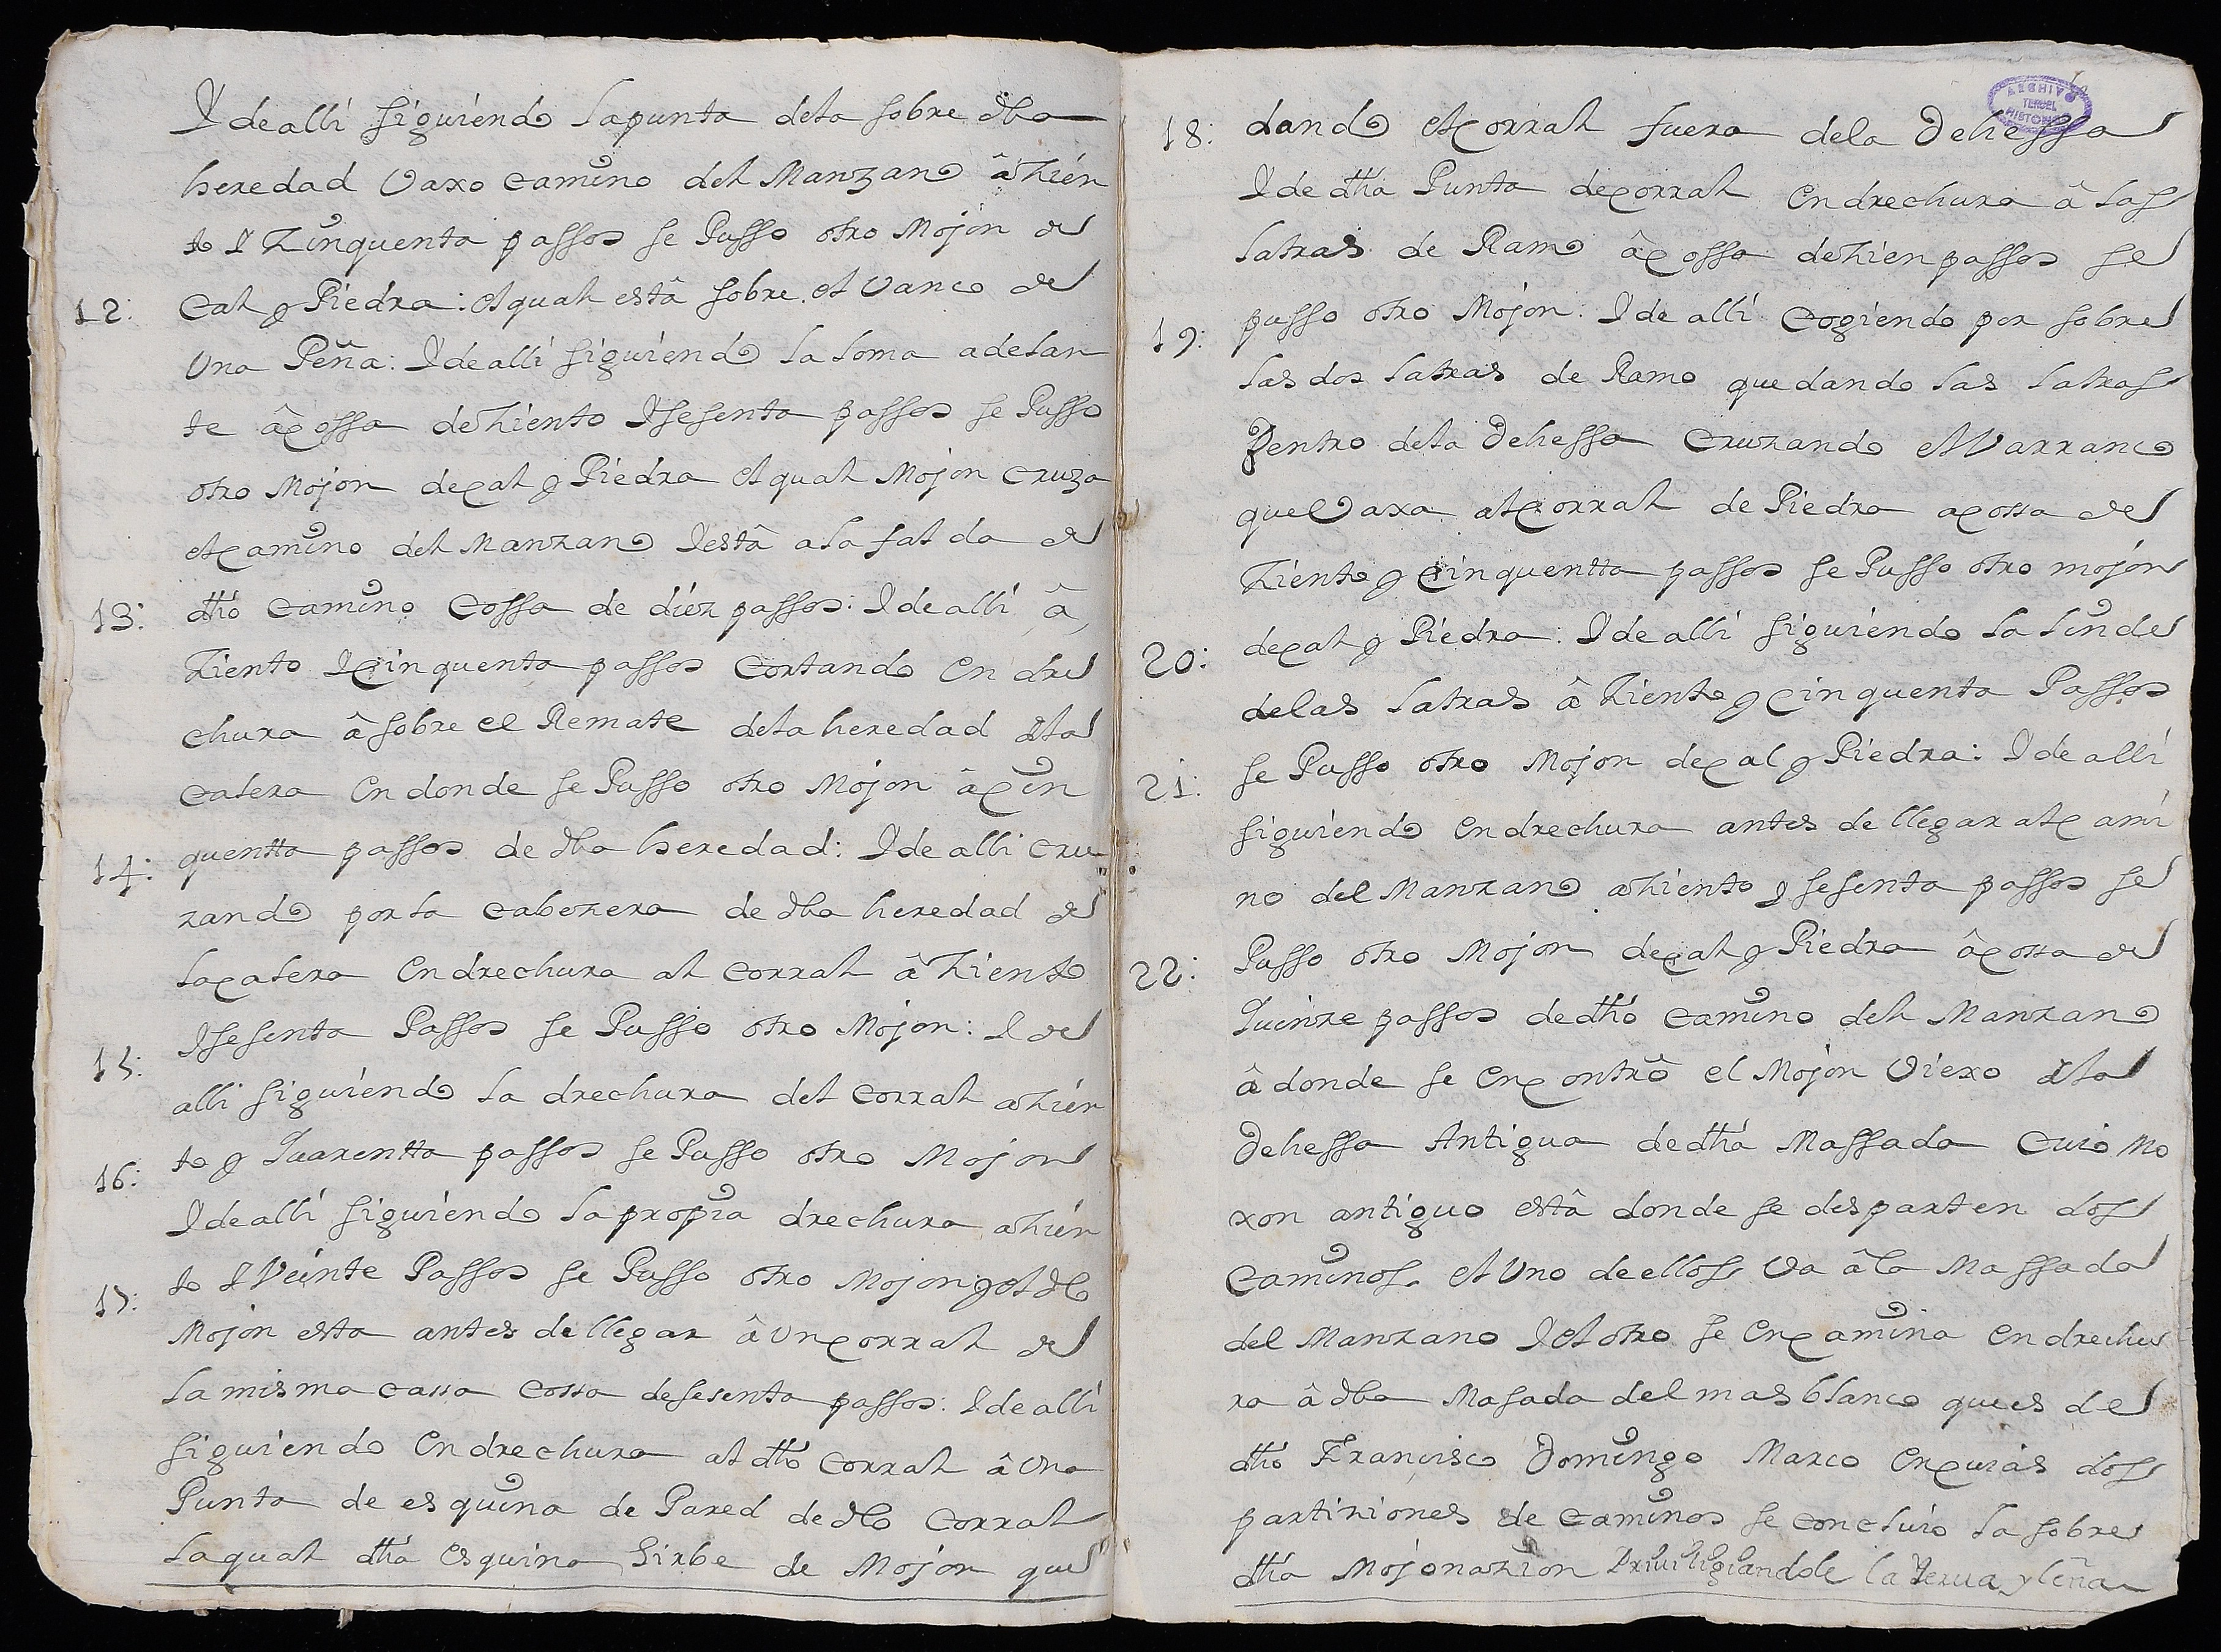 Y de alli siguiendo la punta de la sobre dha
heredad Vaxo camino del Manzano â zien
to Y Zinquenta passos se Pusso otro Mojon de
12: Cal y Piedra: el qual està sobre el Vanco de
Una Peña: Y de alli siguiendo la loma adelan
te â cossa de ziento Y sesenta passos se Pusso
otro Mojon de cal y Piedra el qual Mojon cruza
el camino del Manzano Y està a la falda de
13: dho camino cossa de diez passos: Y de alli â
Ziento Y cinquenta passos Cortando en dre
chura â sobre el Remate de la heredad de la
calera en donde se Pusso otro Mojon â cin
14: quentta passos de dha heredad: Y de alli cru
zando por la cabezera de dha heredad de
la calera en drechura al corral â Ziento
Y sesenta Passos se Pusso otro Mojon: Y de
15: alli siguiendo la drechura del corral a zien
to y Quarentta passos se Pusso otro Mojon
16: Y de alli siguiendo la propia drechura a zien
to Y Veinte Passos se Pusso otro Mojon y el dho
17: Mojon esta antes de llegar â un corral de
la misma cassa cossa de sesenta passos: Y de alli
siguiendo en drechura al dho corral â una
Punta de esquina de Pared de dho corral
la qual dha esquina sirbe de Mojon que
ARCHIVO
TERUEL
HISTORICO
18: dando el corral fuera de la Dehessa
Y de dha Punta de corral en drechura â las
latras de Ramo â cossa de zien passos se
19: pusso otro Mojon: Y de alli cogiendo por sobre
las dos latras de Ramo quedando las latras
Dentro de la Dehessa cruzando el Varranco
que Vaxa al corral de Piedra a cossa de
Ziento y cinquentta passos se Pusso otro mojon
20: de cal y Piedra: Y de alli siguiendo la linde
de las latras â Ziento y cinquenta Passos
21: se Pusso otro Mojon de cal y Piedra: Y de alli
siguiendo en drechura antes de llegar al cami
no del Manzano a ziento y sesenta passos se
22: Pusso otro Mojon de cal y Piedra â cossa de
Quinze passos de dho camino del Manzano
â donde se encontrô el Mojon Viexo de la
Dehessa Antigua de dha Massada cuio Mo
xon antiguo està donde se desparten dos
Caminos el Uno de ellos Va â la Massada
del Manzano Y el otro se encamina en drechu
ra â dha Masada del mas blanco que es de
dho Francisco Domingo Marco en cuias dos
partiziones de caminos se concluio la sobre
dha Mojonazion Priviligiandole la Yerva y leña